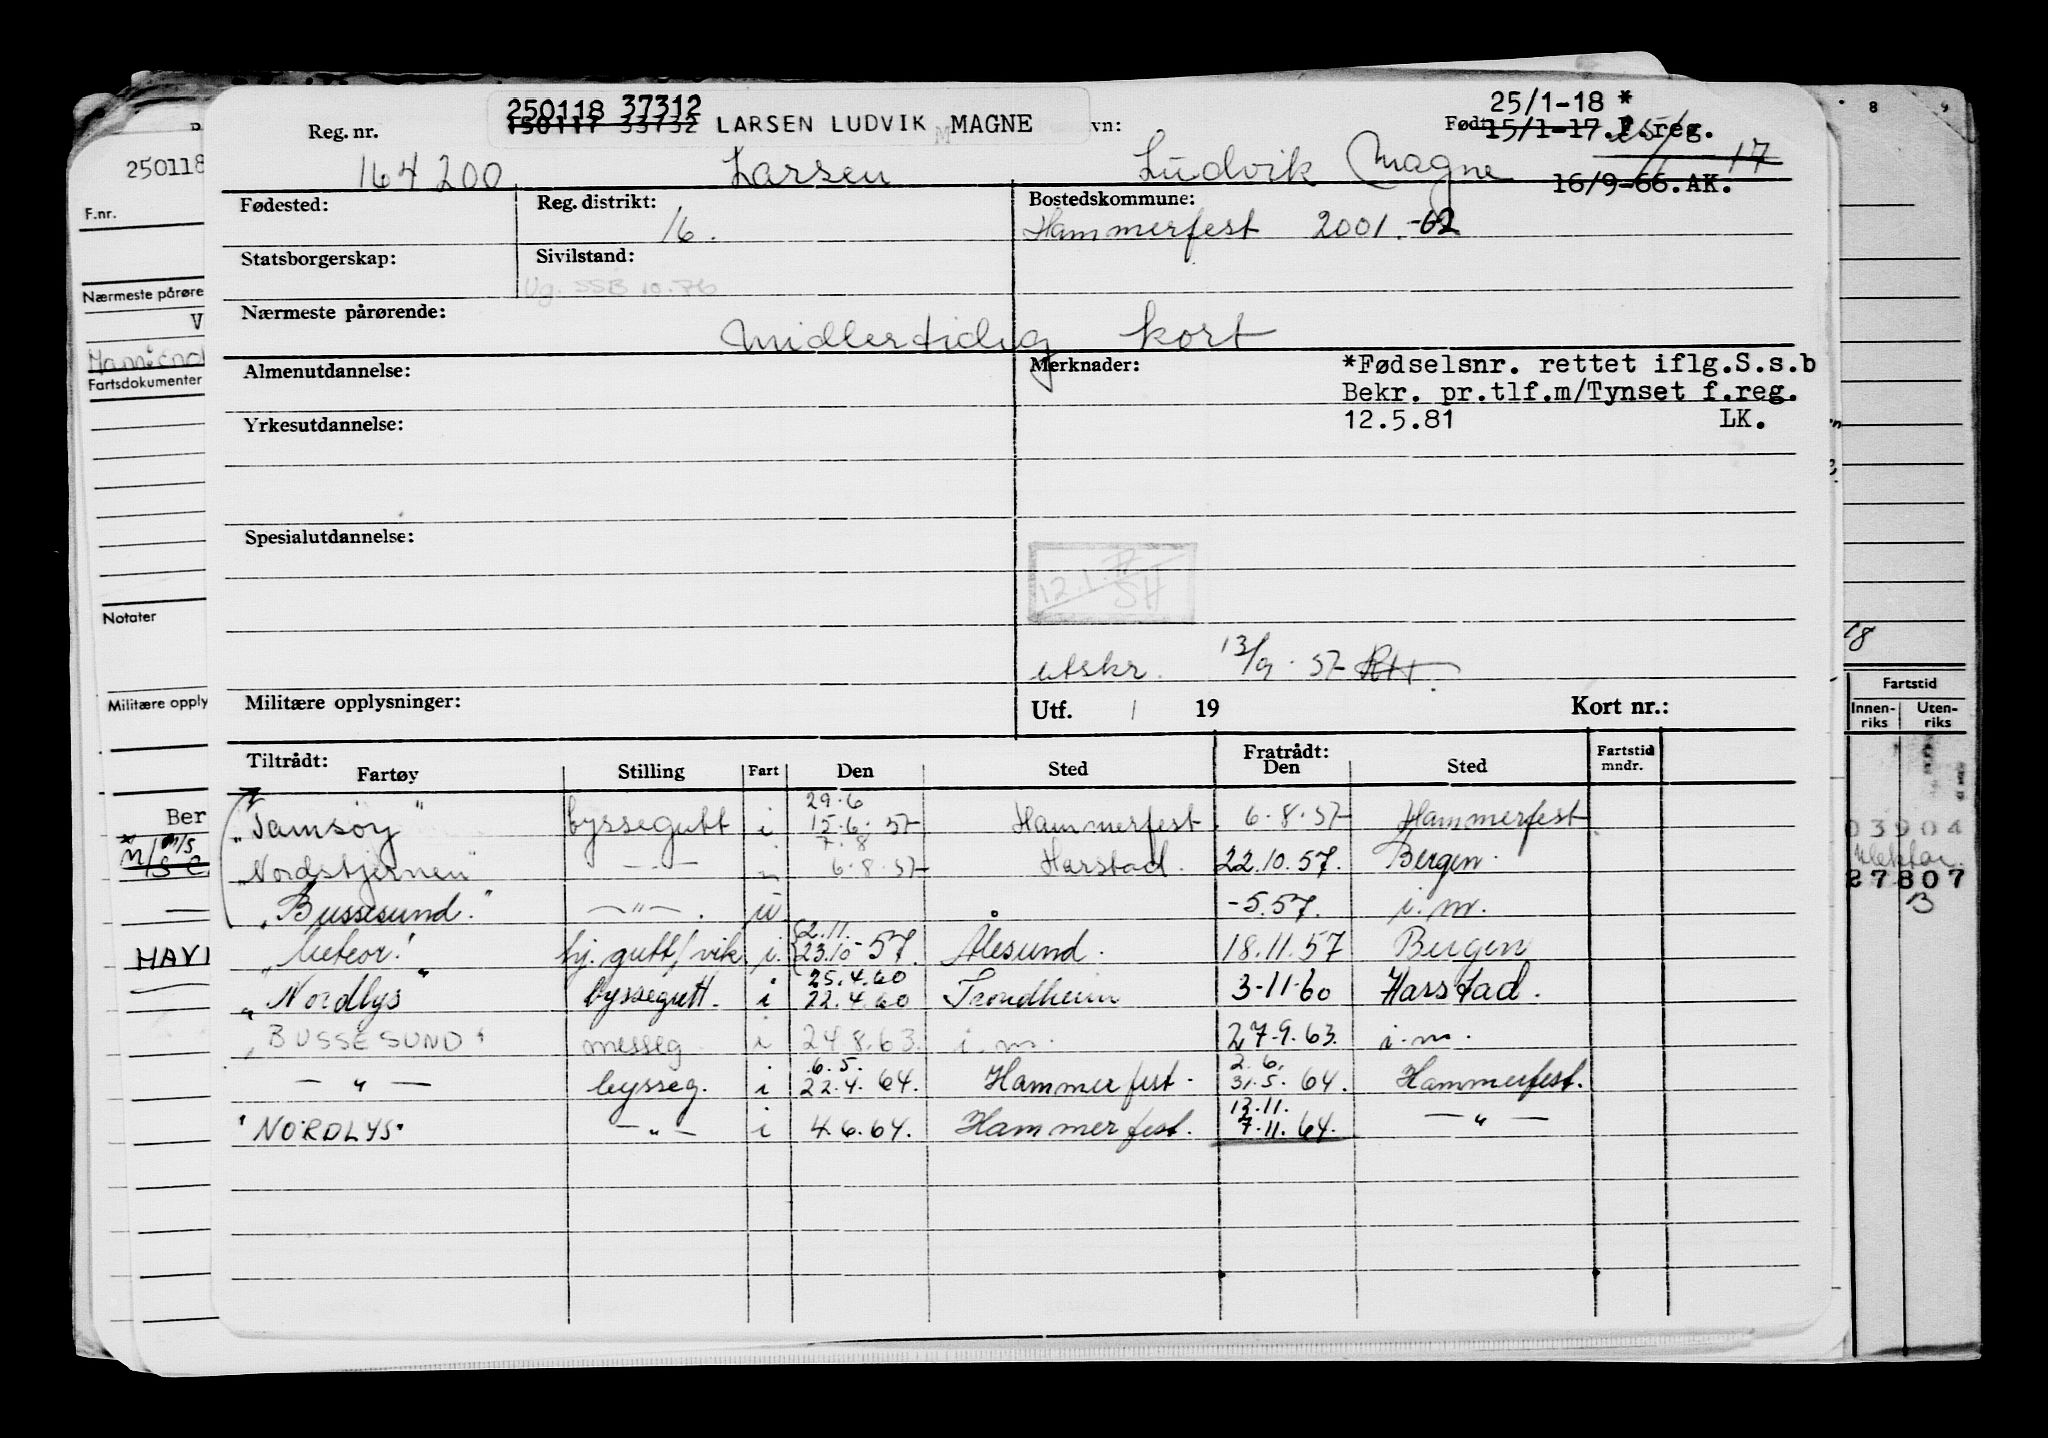 250118 37312
150117 33732 LARSEN LUDVIK MAGNE
25/1-18 *
Reg. nr. vn: Født 15/1-17. F.reg.
164200 Larsen Ludvik Magne 17
16/9-66. AK.
Fødested: Reg. distrikt: Bostedskommune:
16. Hammerfest 2001.-02
Statsborgerskap: Sivilstand:
Ug. SSB 10.76
Nærmeste pårørende:
Midlertidig kort
Almenutdannelse: Merknader: *Fødselsnr. rettet iflg.S.s.b
Bekr. pr.tlf.m/Tynset f.reg.
Yrkesutdannelse: 12.5.81 LK.
Spesialutdannelse:
12.1. SH
utskr. 13/9.57
Militære opplysninger: Utf. / 19 Kort nr.:
Tiltrådt: Fratrådt: Fartstid
Fartøy Stilling Fart Den Sted Den Sted mndr.
29.6
"Tamsøy" byssegutt i 15.6.57 Hammerfest. 6.8.57 Hammerfest
7.8
"Nordstjernen" —"— " 6.8.57 Harstad. 22.10.57. Bergen.
"Bussesund." —"—. -5.57. i.m.
2.11.
"Meteor" by.gutt/vik. i. 23.10-57. Ålesund. 18.11.57 Bergen
25.4.60
"Nordlys" byssegutt. i 22.4.60 Trondheim 3-11-60 Harstad.
"BUSSESUND" messeg. i 24.8.63. i.m. 27.9.63. i.m.
6.5. 2.6.
—"— bysseg. i 22.4.64. Hammerfest. 31.5.64. Hammerfest.
12.11.
"NORDLYS" —"— i 4.6.64. Hammerfest. 7.11.64. —"—
250118
F.nr.
Nærmeste pårøre
V
Fartsdokumenter
Notater
Militære opply
Ber
M/S
HAVI
8 9
18
Fartstid
Innen-riks Uten-riks
03904
27807
B